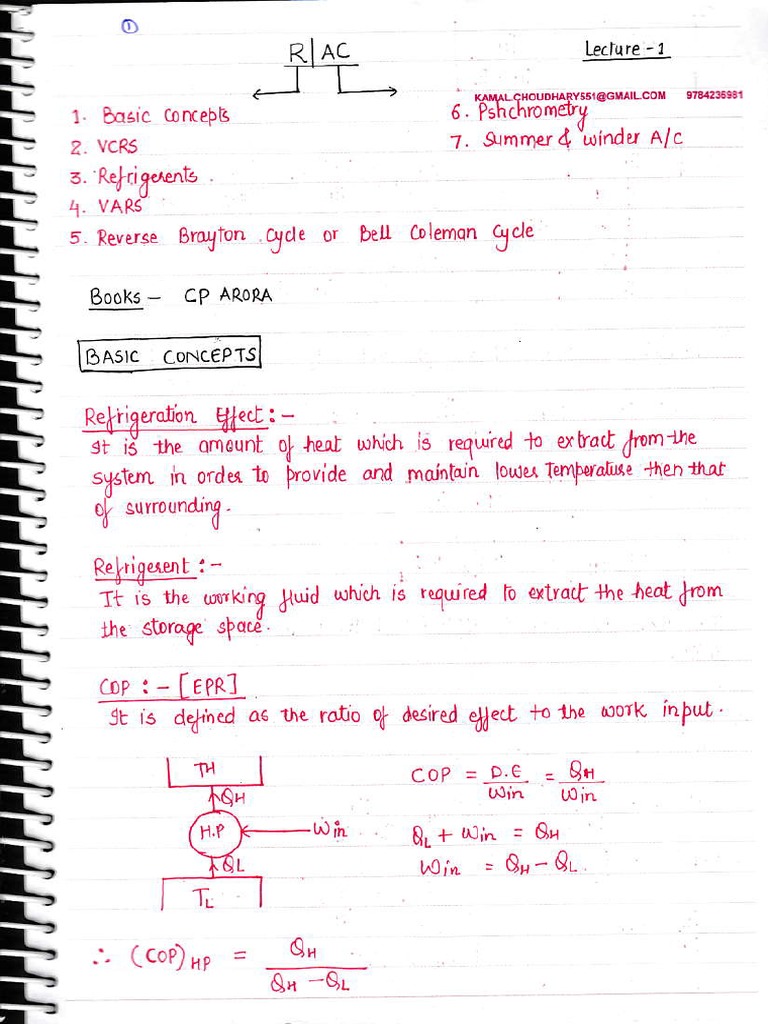 1
R|AC
Lecture - 1
KAMAL.CHOUDHARY551@GMAIL.COM 9784236981
1. Basic Concepts
2. VCRS
3. Refrigerents.
4. VARS
5. Reverse Brayton Cycle or Bell Coleman Cycle
6. Pshchrometry
7. Summer & winder A/C
Books - CP ARORA
BASIC CONCEPTS
Refrigeration Effect :-
It is the amount of heat which is required to extract from the
system in order to provide and maintain lower Temperature then that
of surrounding.
Refrigerent :-
It is the working fluid which is required to extract the heat from
the storage space.
COP :- [EPR]
It is defined as the ratio of desired effect to the work input.
TH
QH
H.P
Win
QL
TL
COP = D.E / Win = QH / Win
QL + Win = QH
Win = QH - QL.
∴ (COP)HP = QH / QH - QL